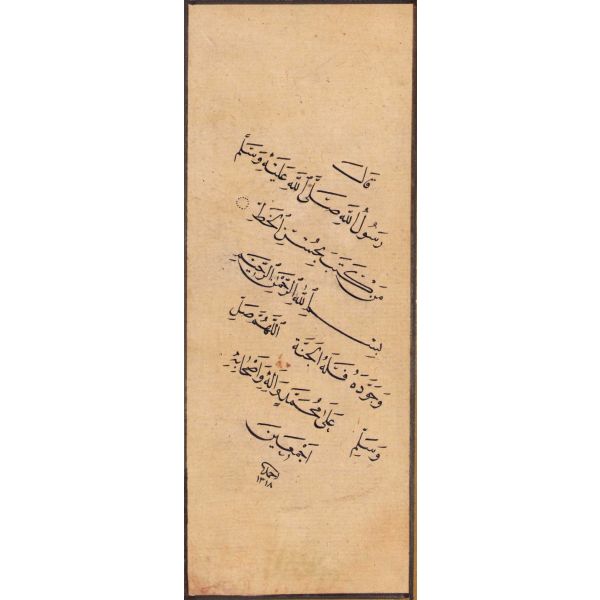 قَالَ
رَسُولُ اللّٰهِ صَلَّى اللّٰهُ عَلَيْهِ وَسَلَّمَ
مَنْ كَتَبَ بِحُسْنِ الْخَطِّ
بِسْمِ اللّٰهِ الرَّحْمٰنِ الرَّحِيمِ
وَجَوَّدَهُ فَلَهُ الْجَنَّةُ اَللّٰهُمَّ صَلِّ
عَلَى مُحَمَّدٍ وَاٰلِهِ وَاَصْحَابِهِ
وَسَلِّمْ اَجْمَعِينَ
١٣١٨